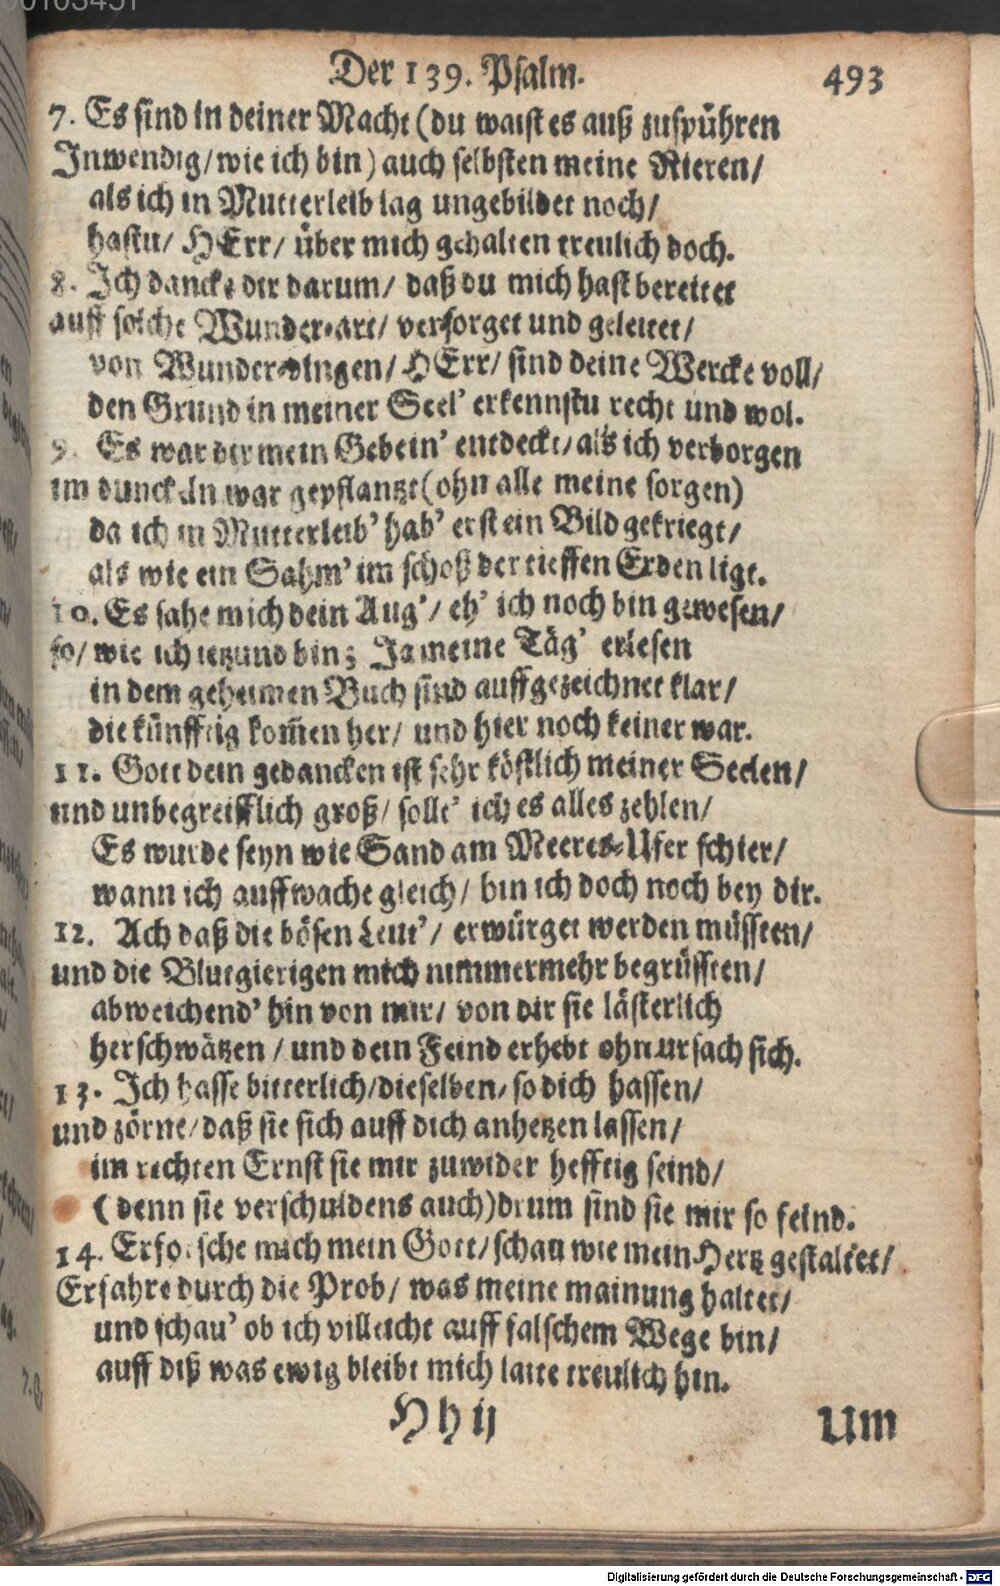 Der 139. Psalm. 493
7. Es sind in deiner Macht (du waist es auß zuspühren
Inwendig/ wie ich bin) auch selbsten meine Nieren/
als ich in Mutterleib lag ungebildet noch/
hastu/ HErr/ über mich gehalten treulich doch.
8. Ich dancke dir darum/ daß du mich hast bereitet
auff solche Wunder-art/ versorget und geleitet/
von Wunder-dingen/ HErr/ sind deine Wercke voll/
den Grund in meiner Seel' erkennstu recht und wol.
9. Es war dir mein Gebein' entdeckt/ als ich verborgen
im dunckeln war gepflantzt (ohn alle meine sorgen)
da ich in Mutterleib' hab' erst ein Bild gekriegt/
als wie ein Sahm' im schoß der tieffen Erden ligt.
10. Es sahe mich dein Aug'/ eh' ich noch bin gewesen/
so/ wie ich ietzund bin; Ja meine Täg' erlesen
in dem geheimen Buch sind auffgezeichnet klar/
die künfftig kom̃en her/ und hier noch keiner war.
11. Gott dein gedancken ist sehr köstlich meiner Seelen/
und unbegreifflich groß/ sollt' ich es alles zehlen/
Es wurde seyn wie Sand am Meeres-Ufer schier/
wann ich auffwache gleich/ bin ich doch noch bey dir.
12. Ach daß die bösen Leut'/ erwürget werden müssten/
und die Blutgierigen mich nimmermehr begrüssten/
abweichend' hin von mir/ von dir sie lästerlich
herschwätzen/ und dein Feind erhebt ohn ursach sich.
13. Ich hasse bitterlich/ dieselben/ so dich hassen/
und zörne/ daß sie sich auff dich anhetzen lassen/
im rechten Ernst sie mir zuwider hefftig seind/
(denn sie verschuldens auch) drum sind sie mir so feind.
14. Erforsche mich mein Gott/ schau wie mein Hertz gestaltet/
Erfahre durch die Prob/ was meine mainung haltet/
und schau' ob ich villeicht auff falschem Wege bin/
auff diß was ewig bleibt mich laite treulich hin.
Hh ij Um
Digitalisierung gefördert durch die Deutsche Forschungsgemeinschaft - DFG